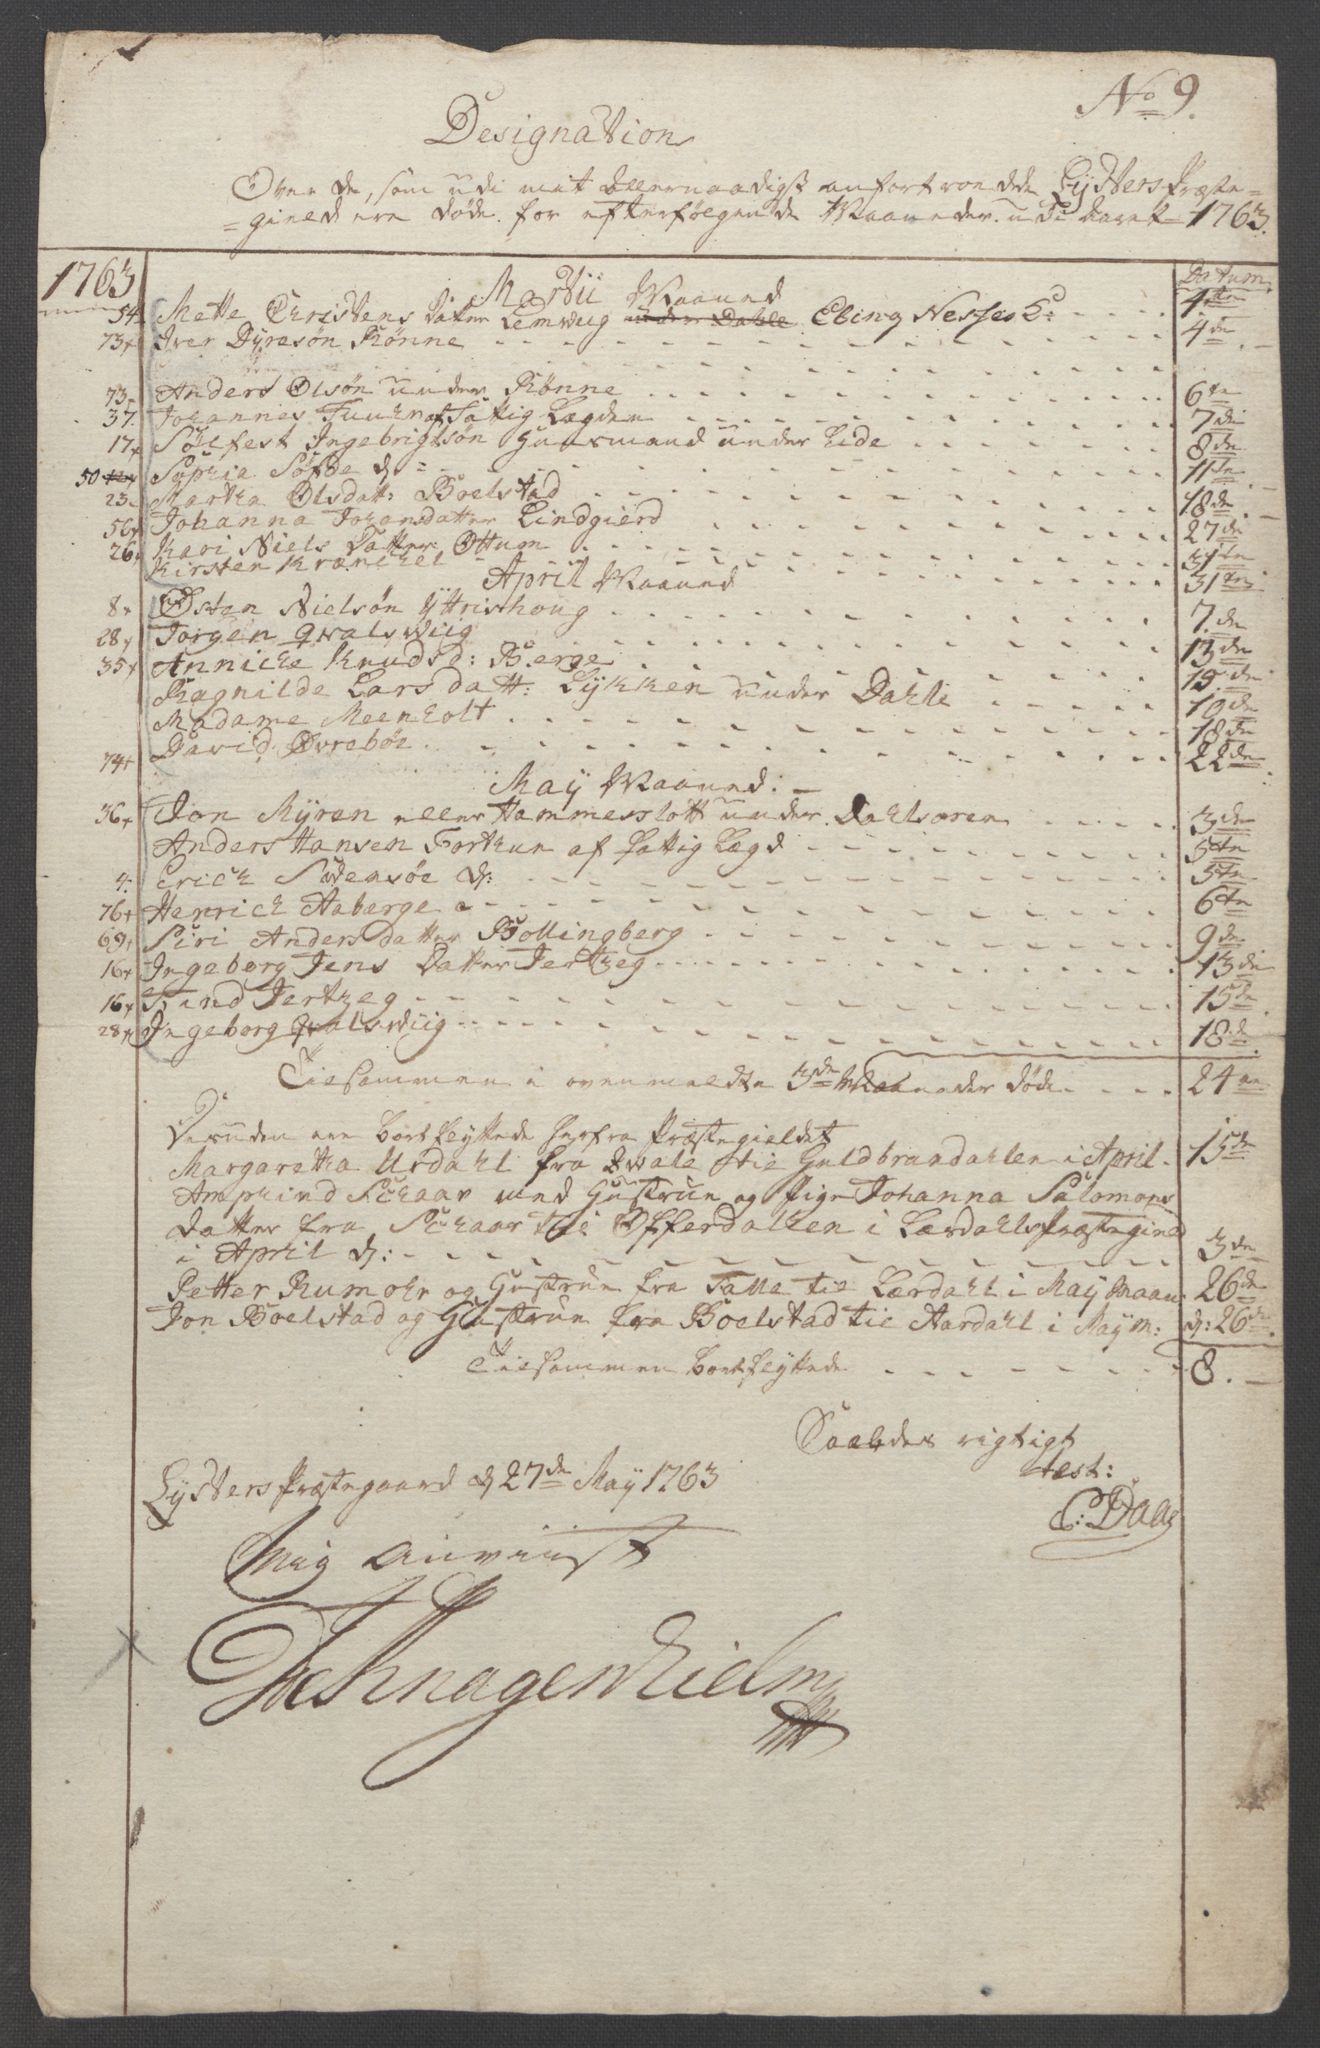 No 9.
Designation
Over de, som udi mit allernaadigst anfortroede Lysters Præste-
gield ere døde for efterfølgende Maaneder udi Aaret 1763.
1763 Martii Maaned Datum
54 Mette Christens Datter Lemwiig under Dahle Ebing Nesses E: 4de
73 Iver Dyresøn Rønne 4de
73 Anders Olsøn under Rønne 6te
37. Johannes Fuhr af Fattig Lægden 7de
17 Sølfest Ingebrigtsøn Huusmand under Lide 8de
50 Sophia Søfde d: 11te
23 Martha Olsdatt: Boelstad 18de
56 Johanna Johansdatter Lindgierd 27de
26 Kari Niels Datter Ottum 31te
Kirsten Kronchel 31te
April Maaned
8 Østen Nielsøn Yttrishoug 7de
28 Jørgen Qvalswiig 13de
35 Anniche Knudsd: Berge 15de
Ragnilde Lars datt: Lykken under Dahle 19de
Madame Meenholt 18de
74 David Øvrebøe 22de
May Maaned
36 Jon Myren eller Hammerslott under Dahlsøren 3de
Anders Hansen Forthun af Fattig Lægd 5te
4. Erich Sødensøe d: 5te
76 Henrich Aaberge 6te
69 Siri Anders datter Bollingberg 9de
16 Ingeborg Jens Datter Jertzeg 13de
16 Trind Jertzeg 15de
28 Ingeborg Qvalswiig 18de
Tilsammen i ovenmeldte 3de Maaneder døde 24
Desuden ere bortflyttede herfra Præstegieldet
Margaretha Urdahl fra Qvale til Guldbrandahlen i April 15de
Amphind Schaar med Hustrue og pige Johanna Salomons
datter fra Schaar til Offerdahlen i Lærdahls Præstegield
i April d: 3de
Petter Rumohr og Hustrue fra Talle til Lærdahl i May Maan: 26de
Jon Boelstad og Hustrue fra Boelstad til Aardahl i May m: d: 26de
Tilsammen bortflyttede 8.
Saaledes rigtigt
test:
Lysters Præstegaard d 27de May 1763
C: Daae
Mig anviist
Knagenhielm